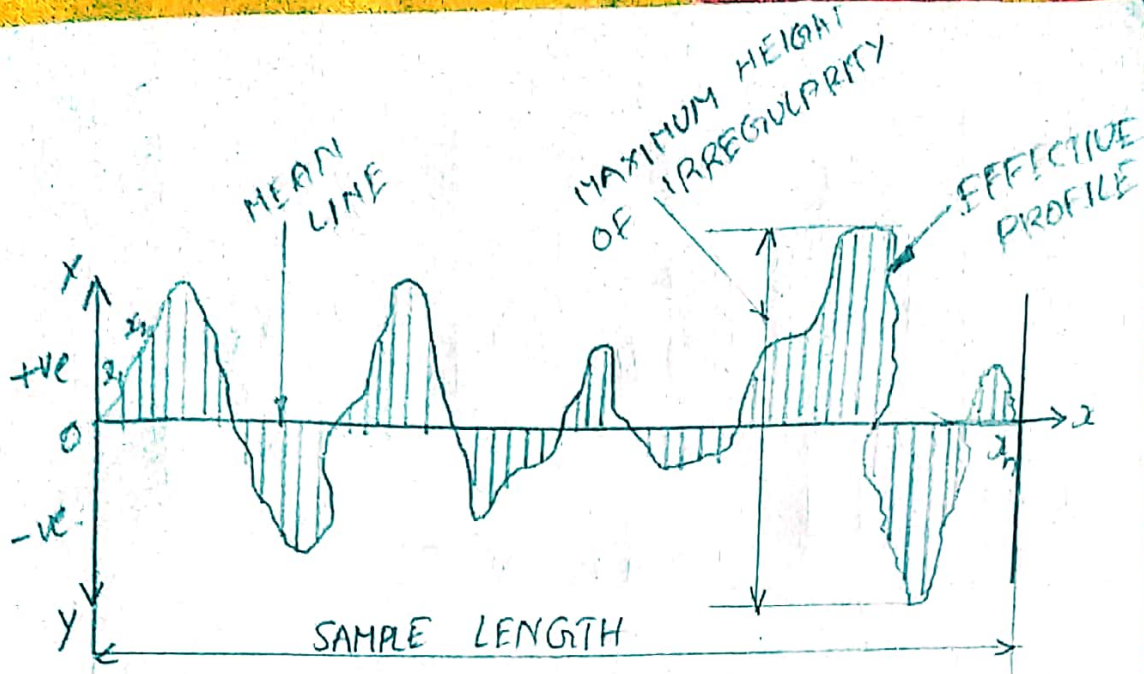 MEAN
LINE
MAXIMUM HEIGHT
OF IRREGULARITY
EFFECTIVE
PROFILE
x
+ve
x₁
x₂
0
x
xₙ
-ve
y
SAMPLE LENGTH